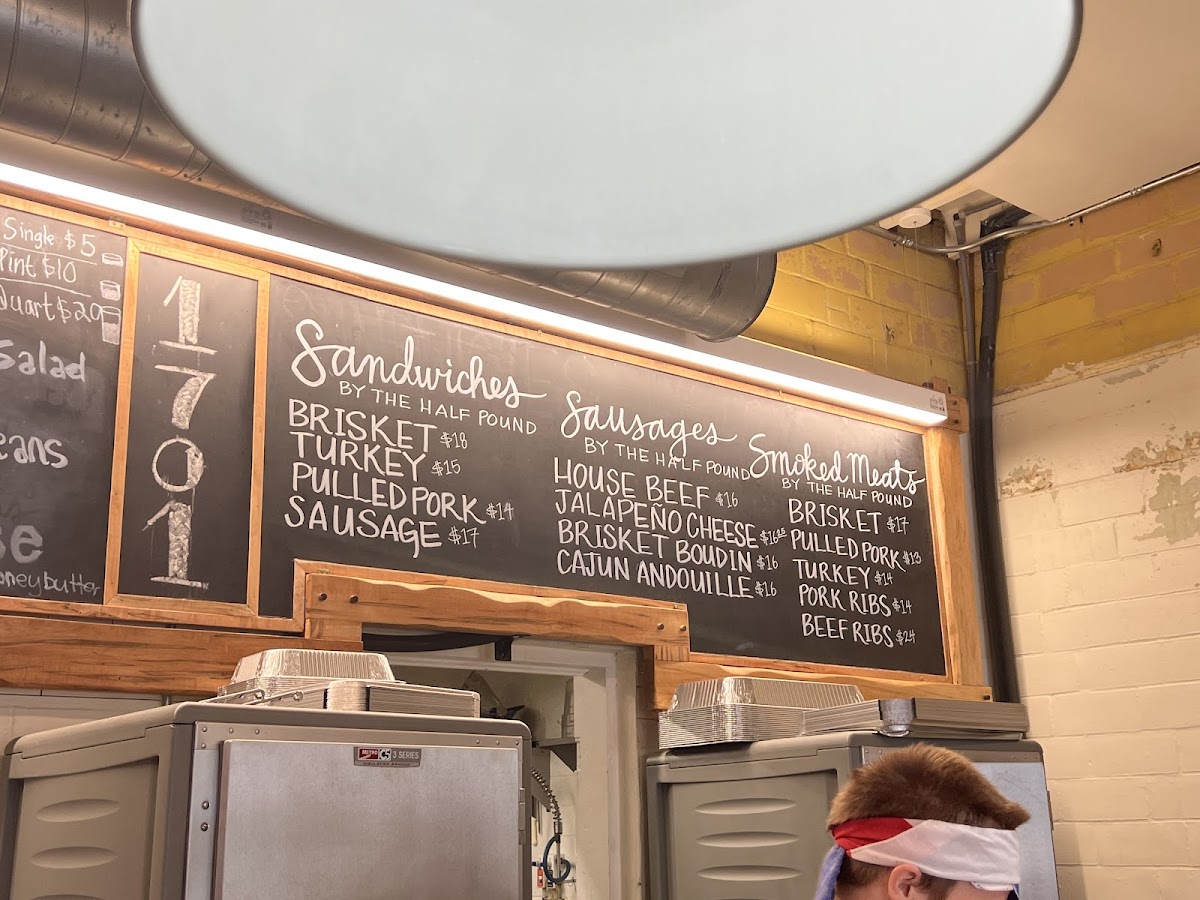 Single $5
Pint $10
Quart $20
Salad
eans
se
oneybutter
1
7
0
1
Sandwiches
BY THE HALF POUND
BRISKET $18
TURKEY $15
PULLED PORK $14
SAUSAGE $17
Sausages
BY THE HALF POUND
HOUSE BEEF $16
JALAPEÑO CHEESE $16
BRISKET BOUDIN $16
CAJUN ANDOUILLE $16
Smoked Meats
BY THE HALF POUND
BRISKET $17
PULLED PORK $13
TURKEY $14
PORK RIBS $14
BEEF RIBS $24
METRO C5 3 SERIES